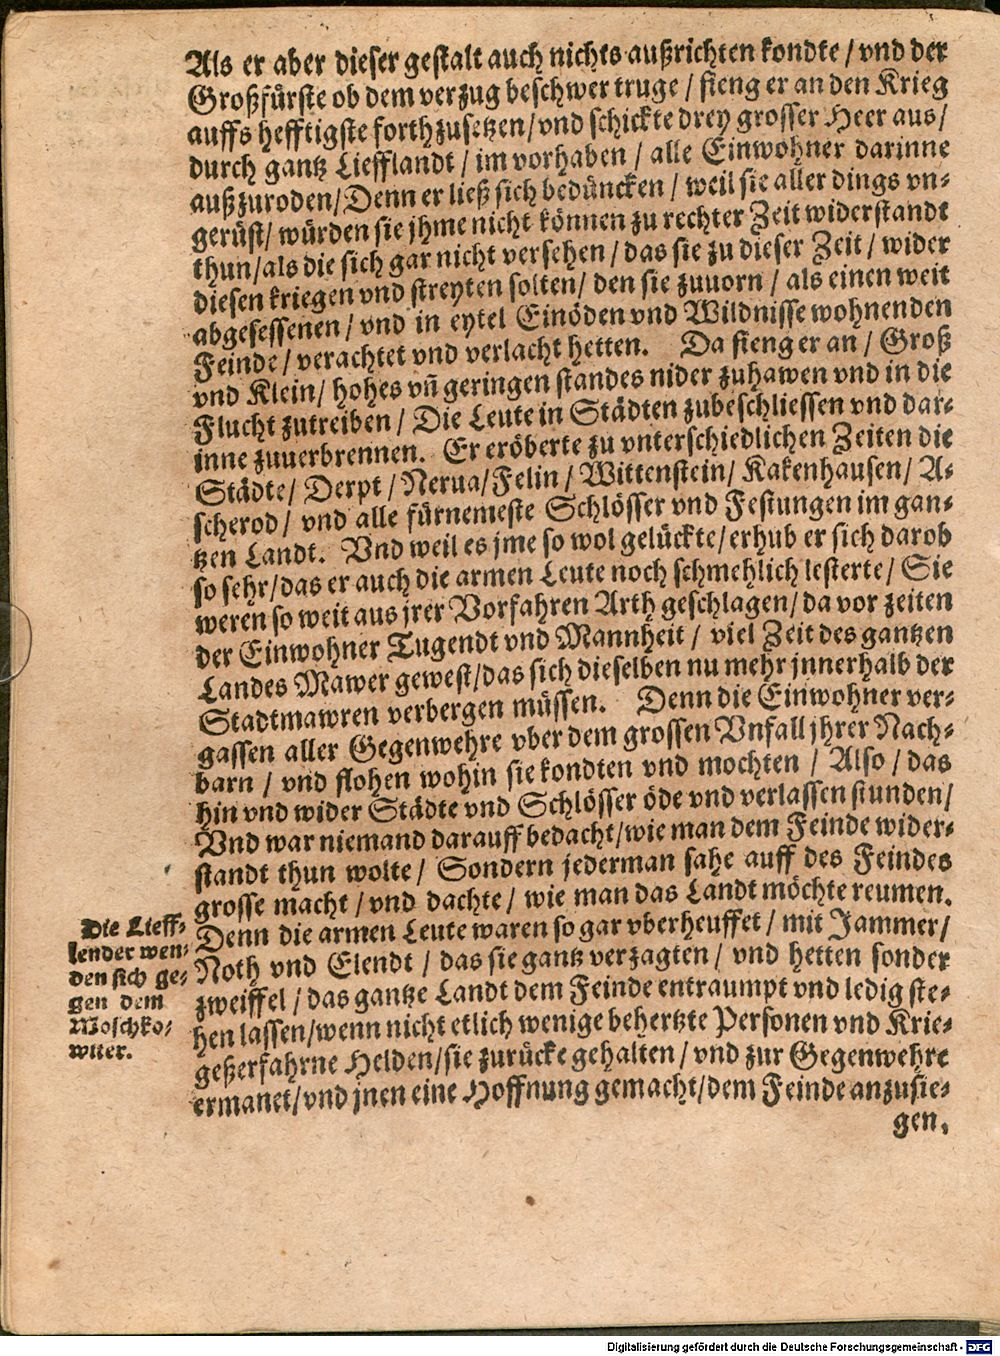 Als er aber dieser gestalt auch nichts außrichten kondte / vnd der
Großfürste ob dem verzug beschwer truge / fieng er an den Krieg
auffs hefftigste forth zusetzen / vnd schickte drey grosser Heer aus /
durch gantz Liefflandt / im vorhaben / alle Einwohner darinne
außzuroden / Denn er ließ sich bedüncken / weil sie aller dings vn-
gerüst / würden sie jhme nicht können zu rechter Zeit widerstandt
thun / als die sich gar nicht versehen / das sie zu dieser Zeit / wider
diesen kriegen vnd streyten solten / den sie zuuorn / als einen weit
abgesessenen / vnd in eytel Einöden vnd Wildnisse wohnenden
Feinde / verachtet vnd verlacht hetten. Da fieng er an / Groß
vnd Klein / hohes vñ geringen standes nider zuhawen vnd in die
Flucht zutreiben / Die Leute in Städten zubeschliessen vnd dar-
inne zuuerbrennen. Er eröberte zu vnterschiedlichen Zeiten die
Städte / Derpt / Nerua / Felin / Wittenstein / Kakenhausen / A-
scherod / vnd alle fürnemeste Schlösser vnd Festungen im gan-
tzen Landt. Vnd weil es jme so wol gelückte / erhub er sich darob
so sehr / das er auch die armen Leute noch schmehlich lesterte / Sie
weren so weit aus jrer Vorfahren Arth geschlagen / da vor zeiten
der Einwohner Tugendt vnd Mannheit / viel Zeit des gantzen
Landes Mawer gewest / das sich dieselben nu mehr jnnerhalb der
Stadtmawren verbergen müssen. Denn die Einwohner ver-
gassen aller Gegenwehre vber dem grossen Vnfall jhrer Nach-
barn / vnd flohen wohin sie kondten vnd mochten / Also / das
hin vnd wider Städte vnd Schlösser öde vnd verlassen stunden /
Vnd war niemand darauff bedacht / wie man dem Feinde wider-
standt thun wolte / Sondern jederman sahe auff des Feindes
grosse macht / vnd dachte / wie man das Landt möchte reumen.
Denn die armen Leute waren so gar vberheuffet / mit Jammer /
Noth vnd Elendt / das sie gantz verzagten / vnd hetten sonder
zweiffel / das gantze Landt dem Feinde entraumpt vnd ledig ste-
hen lassen / wenn nicht etlich wenige behertzte Personen vnd Krie-
geßerfahrne Helden / sie zurücke gehalten / vnd zur Gegenwehre
ermanet / vnd jnen eine Hoffnung gemacht / dem Feinde anzusie-
gen.
Die Lieff-
lender wen-
den sich ge-
gen dem
Moschko-
witer.
Digitalisierung gefördert durch die Deutsche Forschungsgemeinschaft - DFG